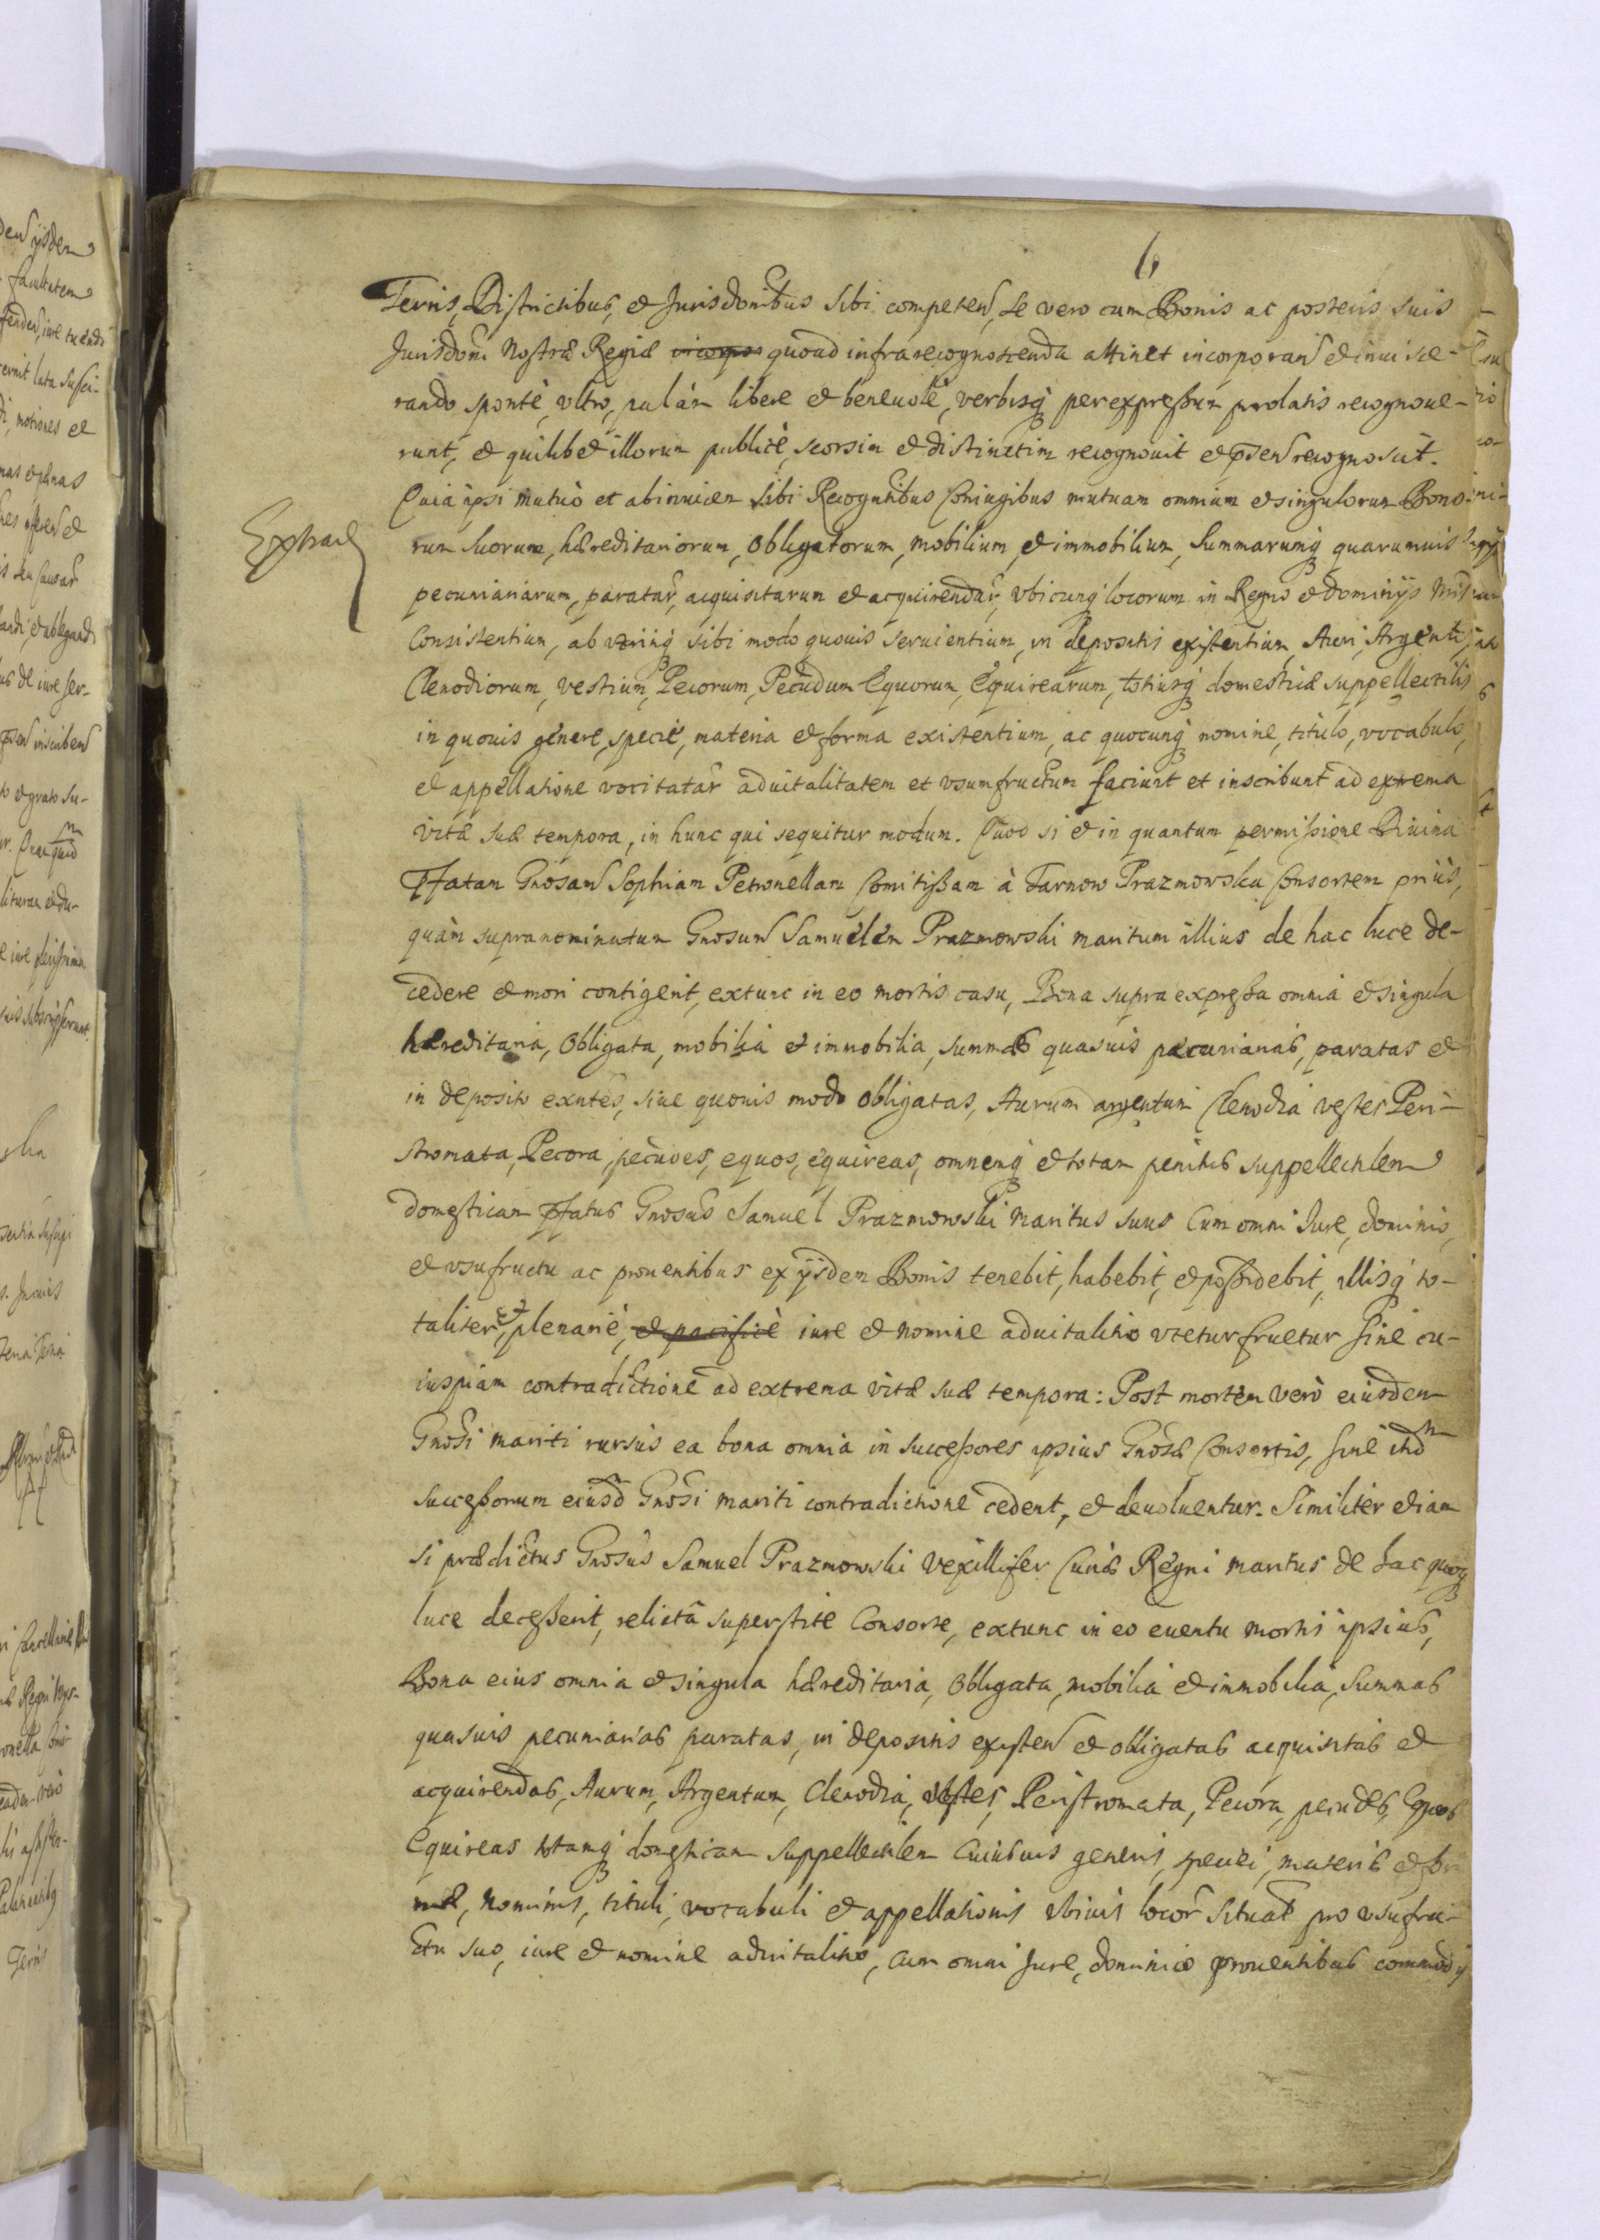 6
Terris, Districtibus, et Jurisdonibus sibi competen, se vero cum Bonis ac posteris suis
Jurisdoni Nostræ Regiæ incorpo quoad infra recognoscenda attinet incorporan et inuisce-
rando sponte, vltro, palàm libere et beneuolè, verbisq per expressum prolatis recognoue-
runt, et quilibet illorum publicè, seorsim et distinctim recognouit et pñsen recognoscit.
Quia ipsi mutuò et abinuicem sibi Recogntibus Coniugibus mutuam omnium et singulorum Bono-
rum suorum, hæreditariorum, Obligatorum, mobilium et immobilium, Summarumq quarumuis
pecuniariarum, paratar, acquisitarum et acquirendar, vbicunq locorum in Regno et dominijs
Consistentium, ab utrinq sibi modo quouis seruientium, in depositis existentium, Auri, Argenti,
Clenodiorum, vestium, Pecorum, Pecudum Equorum, Equirearum, totiusq domesticæ suppellectilis
in quouis genere, specie, materia et forma existentium, ac quocunq nomine, titulo, vocabulo,
et appellatione vocitatar aduitalitatem et vsumfructum faciunt et inscribunt ad extrema
vitæ suæ tempora, in hunc qui sequitur modum. Quod si et in quantum permissione Diuina
Pfatam Gnosam Sophiam Petronellam Comitissam à Tarnow Prazmowska Consortem priùs,
quàm supranominatum Gnosum Samuelem Prazmowski maritum illius de hac luce de-
cedere et mori contigerit, extunc in eo mortis casu, Bona supra expressa omnia et singula
hæreditaria, Obligata, mobilia et immobilia, summas quasuis pecuniarias, paratas et
in deposito exntes, siue quouis modo Obligatas, Aurum argentum Clenodia vestes Peri-
stromata, Pecora, pecudes, equos, equireas, omnemq et totam penitus suppellectilem
domesticam Pfatus Gnosus Samuel Prazmowski Maritus suus Cum omni Iure, dominio,
et vsufructu ac prouentibus ex ijsdem Bonis tenebit, habebit, et possidebit, illisq to-
taliter, et plenariè, et pacificè iure et nomine aduitalitio vtetur fruetur sine cu-
iuspiam contradictione ad extrema vitæ suæ tempora: Post mortem verò eiusdem
Gnosi mariti rursus ea bona omnia in successores ipsius Gnosæ Consortis, sine
successorum eiusd Gnosi mariti contradictione cedent, et deuoluentur. Similiter etiam
si prædictus Gnosus Samuel Prazmowski Vexillifer Curiæ Regni maritus de hac quoq
luce decesserit, relictâ superstite Consorte, extunc in eo euentu mortis ipsius,
Bona eius omnia et singula hæreditaria, Obligata, mobilia et immobilia, Summas
quasuis pecuniarias paratas, in depositis existen et obligatas acquisitas et
acquirendas, Aurum, Argentum, Clenodia, vestes, Peristromata, Pecora, pecudes, Equos
Equireas totamq domesticam suppellectilem cuiusuis generis, speciei, materiæ et for
mæ, nominis, tituli, vocabuli et appellationis vbiuis locor situat pro vsufru-
ctu suo, iure et nomine aduitalitio, cum omni Jure, dominio prouentibus commodij